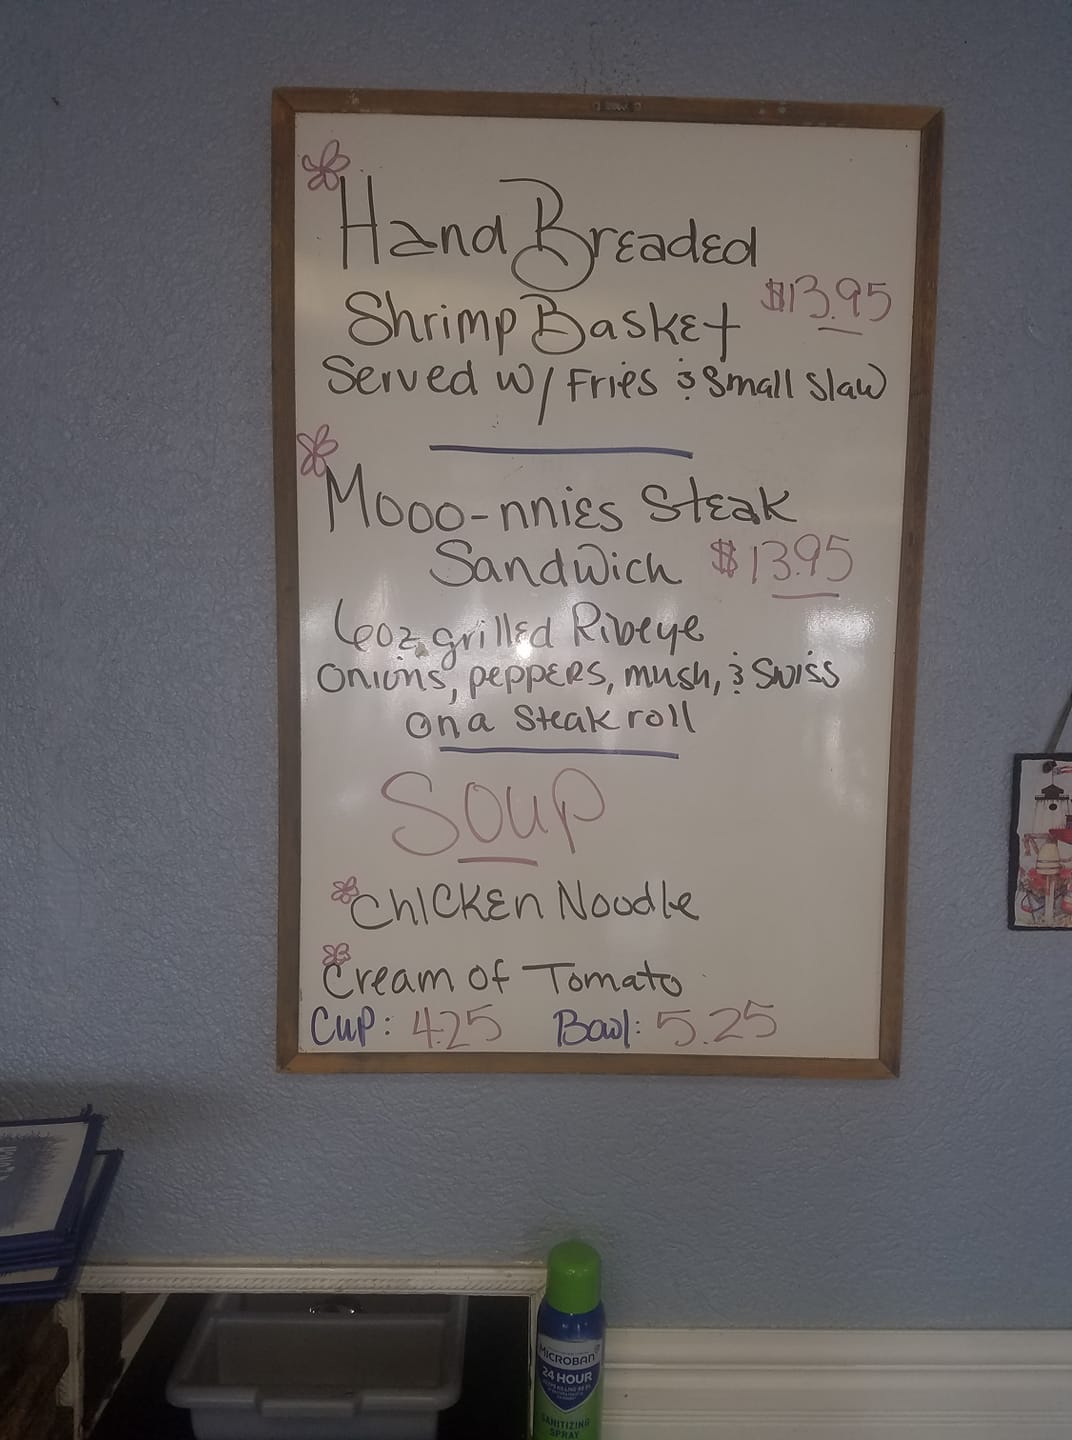 Hand Breaded
Shrimp Basket $13.95
Served w/ Fries & Small Slaw
Mooo-nnies Steak
Sandwich $13.95
6oz grilled Ribeye
Onions, peppers, mush, & Swiss
on a Steak roll
Soup
Chicken Noodle
Cream of Tomato
Cup: 4.25 Bowl: 5.25
MICROBAN
24 HOUR
SANITIZING
SPRAY